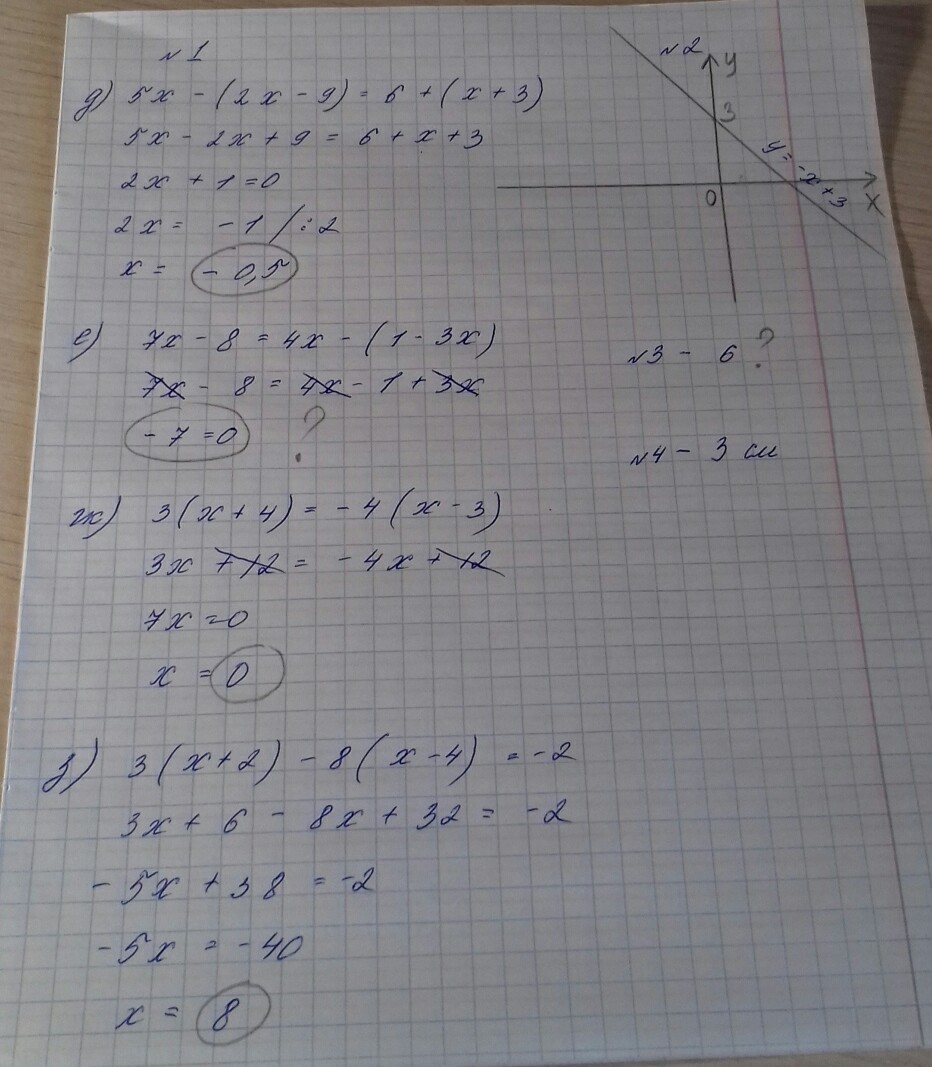 №1
д) 5x - (2x - 9) = 6 + (x + 3)
5x - 2x + 9 = 6 + x + 3
2x + 1 = 0
2x = -1 / : 2
x = -0,5
е) 7x - 8 = 4x - (1 - 3x)
7x - 8 = 4x - 1 + 3x
-7 = 0 ?
ж) 3(x + 4) = -4(x - 3)
3x + 12 = -4x + 12
7x = 0
x = 0
з) 3(x + 2) - 8(x - 4) = -2
3x + 6 - 8x + 32 = -2
-5x + 38 = -2
-5x = -40
x = 8
№2
y
3
y = -x + 3
0
x
№3 - 6 ?
№4 - 3 см